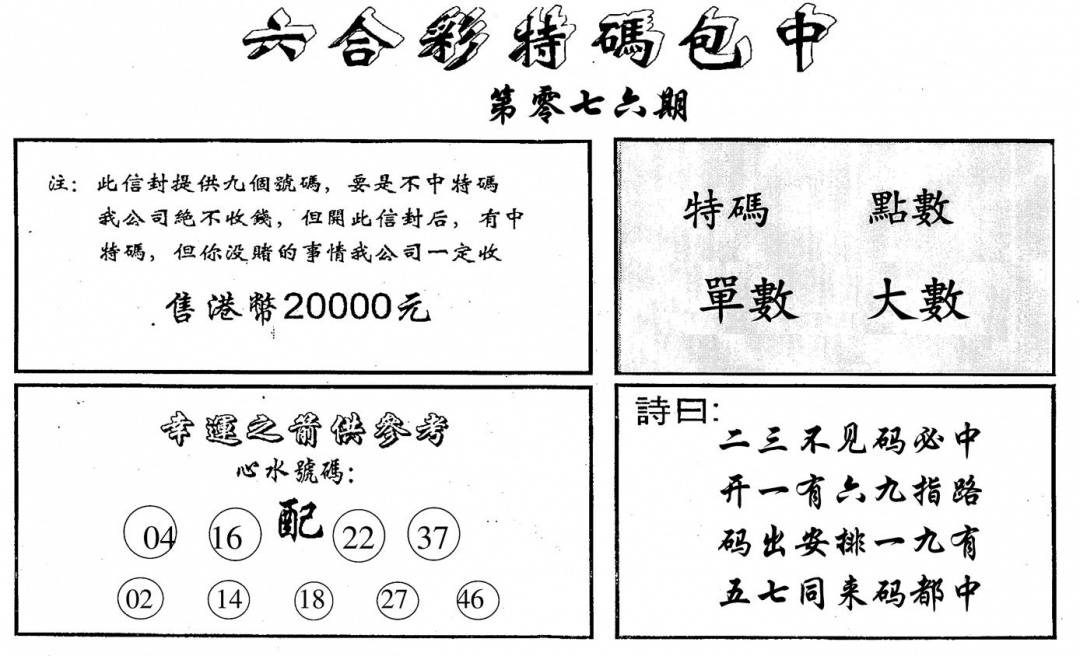 六合彩特碼包中
第零七六期
注：此信封提供九個號碼，要是不中特碼
我公司絶不收錢，但開此信封后，有中
特碼，但你没賭的事情我公司一定收
售港幣20000元
特碼 點數
單數 大數
幸運之箭供參考
心水號碼：
04 16 配 22 37
02 14 18 27 46
詩曰：
二三不见码必中
开一有六九指路
码出安排一九有
五七同来码都中